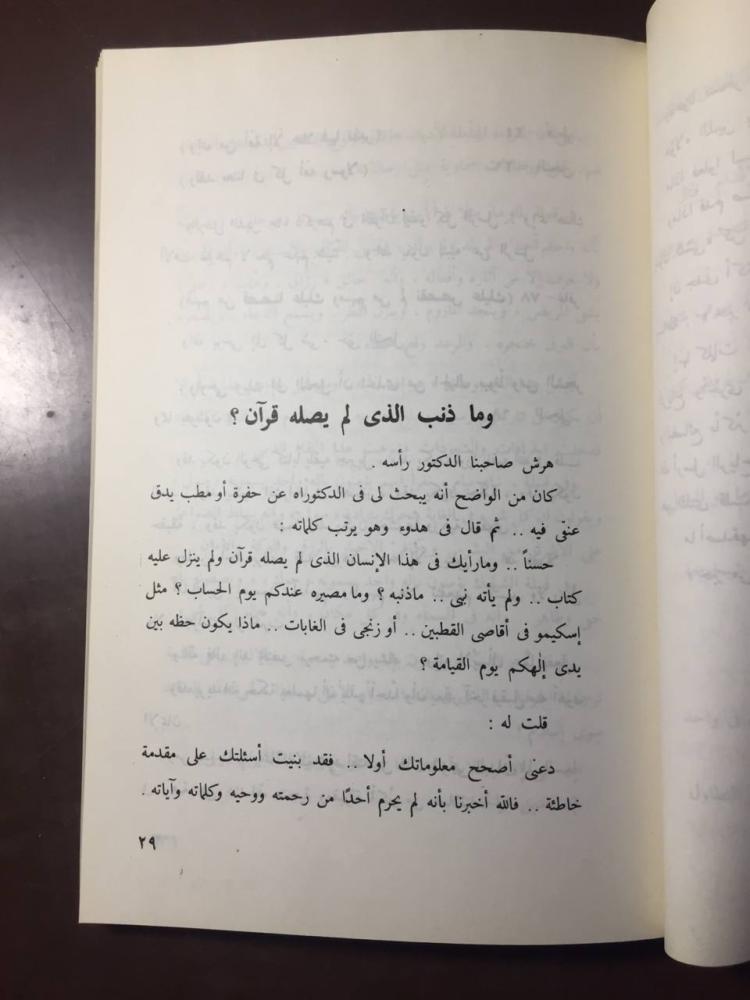 وما ذنب الذى لم يصله قرآن ؟
هرش صاحبنا الدكتور رأسه .
كان من الواضح أنه يبحث لى فى الدكتوراه عن حفرة أو مطب يدق
عنقى فيه .. ثم قال فى هدوء وهو يرتب كلماته :
حسناً .. ومارأيك فى هذا الإنسان الذى لم يصله قرآن ولم ينزل عليه
كتاب .. ولم يأته نبى .. ماذنبه ؟ وما مصيره عندكم يوم الحساب ؟ مثل
إسكيمو فى أقاصى القطبين .. أو زنجى فى الغابات .. ماذا يكون حظه بين
يدى إلٰهكم يوم القيامة ؟
قلت له :
دعنى أصحح معلوماتك أولا .. فقد بنيت أسئلتك على مقدمة
خاطئة .. فالله أخبرنا بأنه لم يحرم أحدًا من رحمته ووحيه وكلماته وآياته .
٢٩